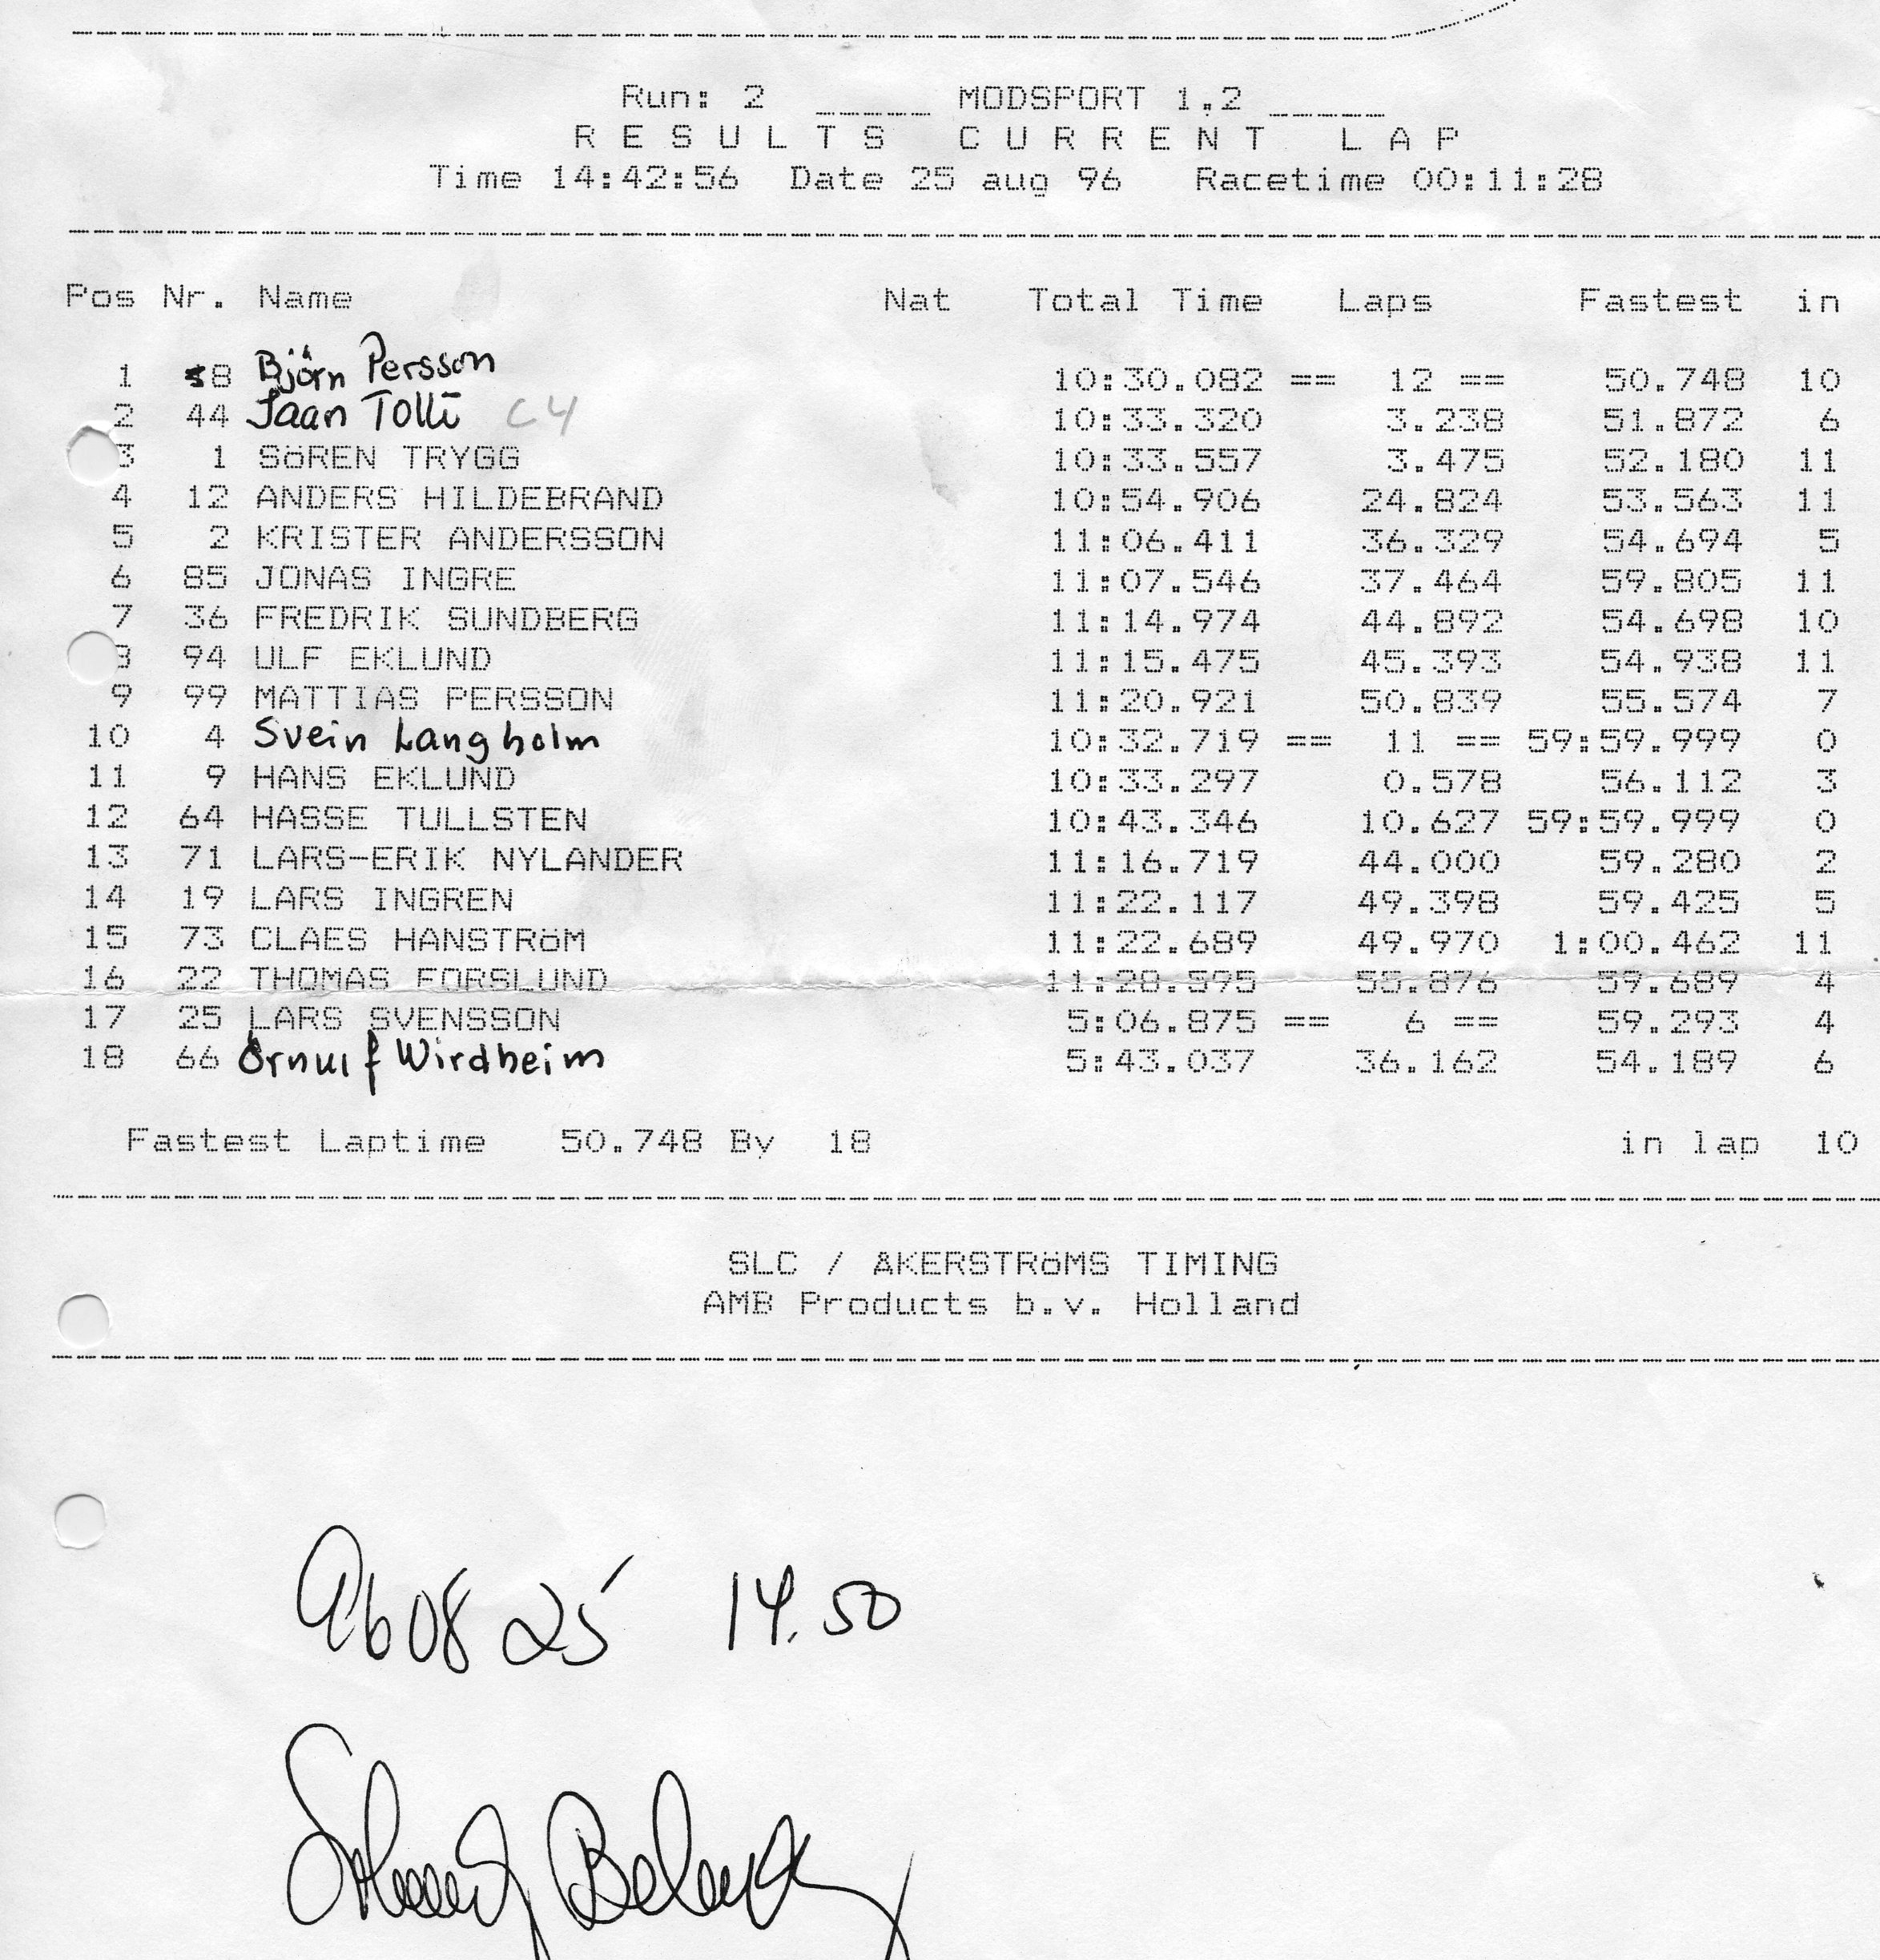 Run: 2 _____ MODSPORT 1.2 _____
R E S U L T S C U R R E N T L A P
Time 14:42:56 Date 25 aug 96 Racetime 00:11:28
Pos Nr. Name Nat Total Time Laps Fastest in
1 58 Björn Persson 10:30.082 == 12 == 50.748 10
2 44 Jaan Tolli C4 10:33.320 3.238 51.872 6
3 1 SöREN TRYGG 10:33.557 3.475 52.180 11
4 12 ANDERS HILDEBRAND 10:54.906 24.824 53.563 11
5 2 KRISTER ANDERSSON 11:06.411 36.329 54.694 5
6 85 JONAS INGRE 11:07.546 37.464 59.805 11
7 36 FREDRIK SUNDBERG 11:14.974 44.892 54.698 10
8 94 ULF EKLUND 11:15.475 45.393 54.938 11
9 99 MATTIAS PERSSON 11:20.921 50.839 55.574 7
10 4 Svein Langholm 10:32.719 == 11 == 59:59.999 0
11 9 HANS EKLUND 10:33.297 0.578 56.112 3
12 64 HASSE TULLSTEN 10:43.346 10.627 59:59.999 0
13 71 LARS-ERIK NYLANDER 11:16.719 44.000 59.280 2
14 19 LARS INGREN 11:22.117 49.398 59.425 5
15 73 CLAES HANSTRöM 11:22.689 49.970 1:00.462 11
16 22 THOMAS FORSLUND 11:28.595 55.876 59.689 4
17 25 LARS SVENSSON 5:06.875 == 6 == 59.293 4
18 66 Örnulf Wirdheim 5:43.037 36.162 54.189 6
Fastest Laptime 50.748 By 18 in lap 10
SLC / ÅKERSTRöMS TIMING
AMB Products b.v. Holland
960825 14.50